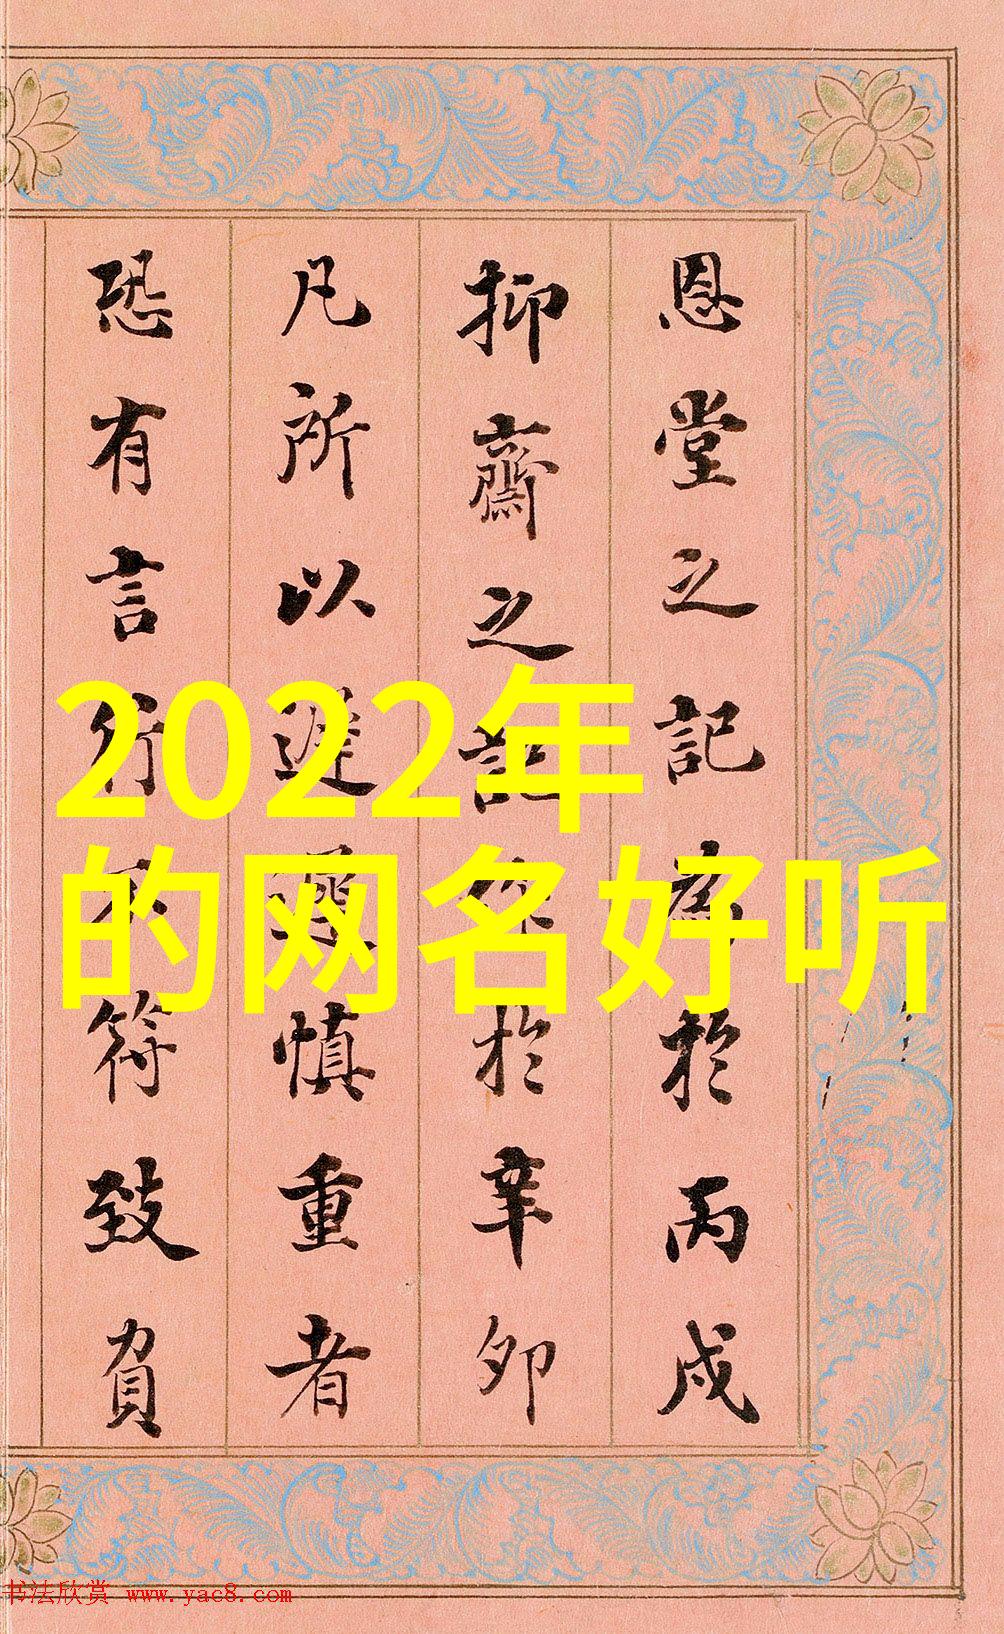 恩堂之記為於丙戌
抑齋之記作於辛卯
凡所以遲遲慎重者
恐有言行不符致負
2022年
的网名好听
书法欣赏 www.yac8.com